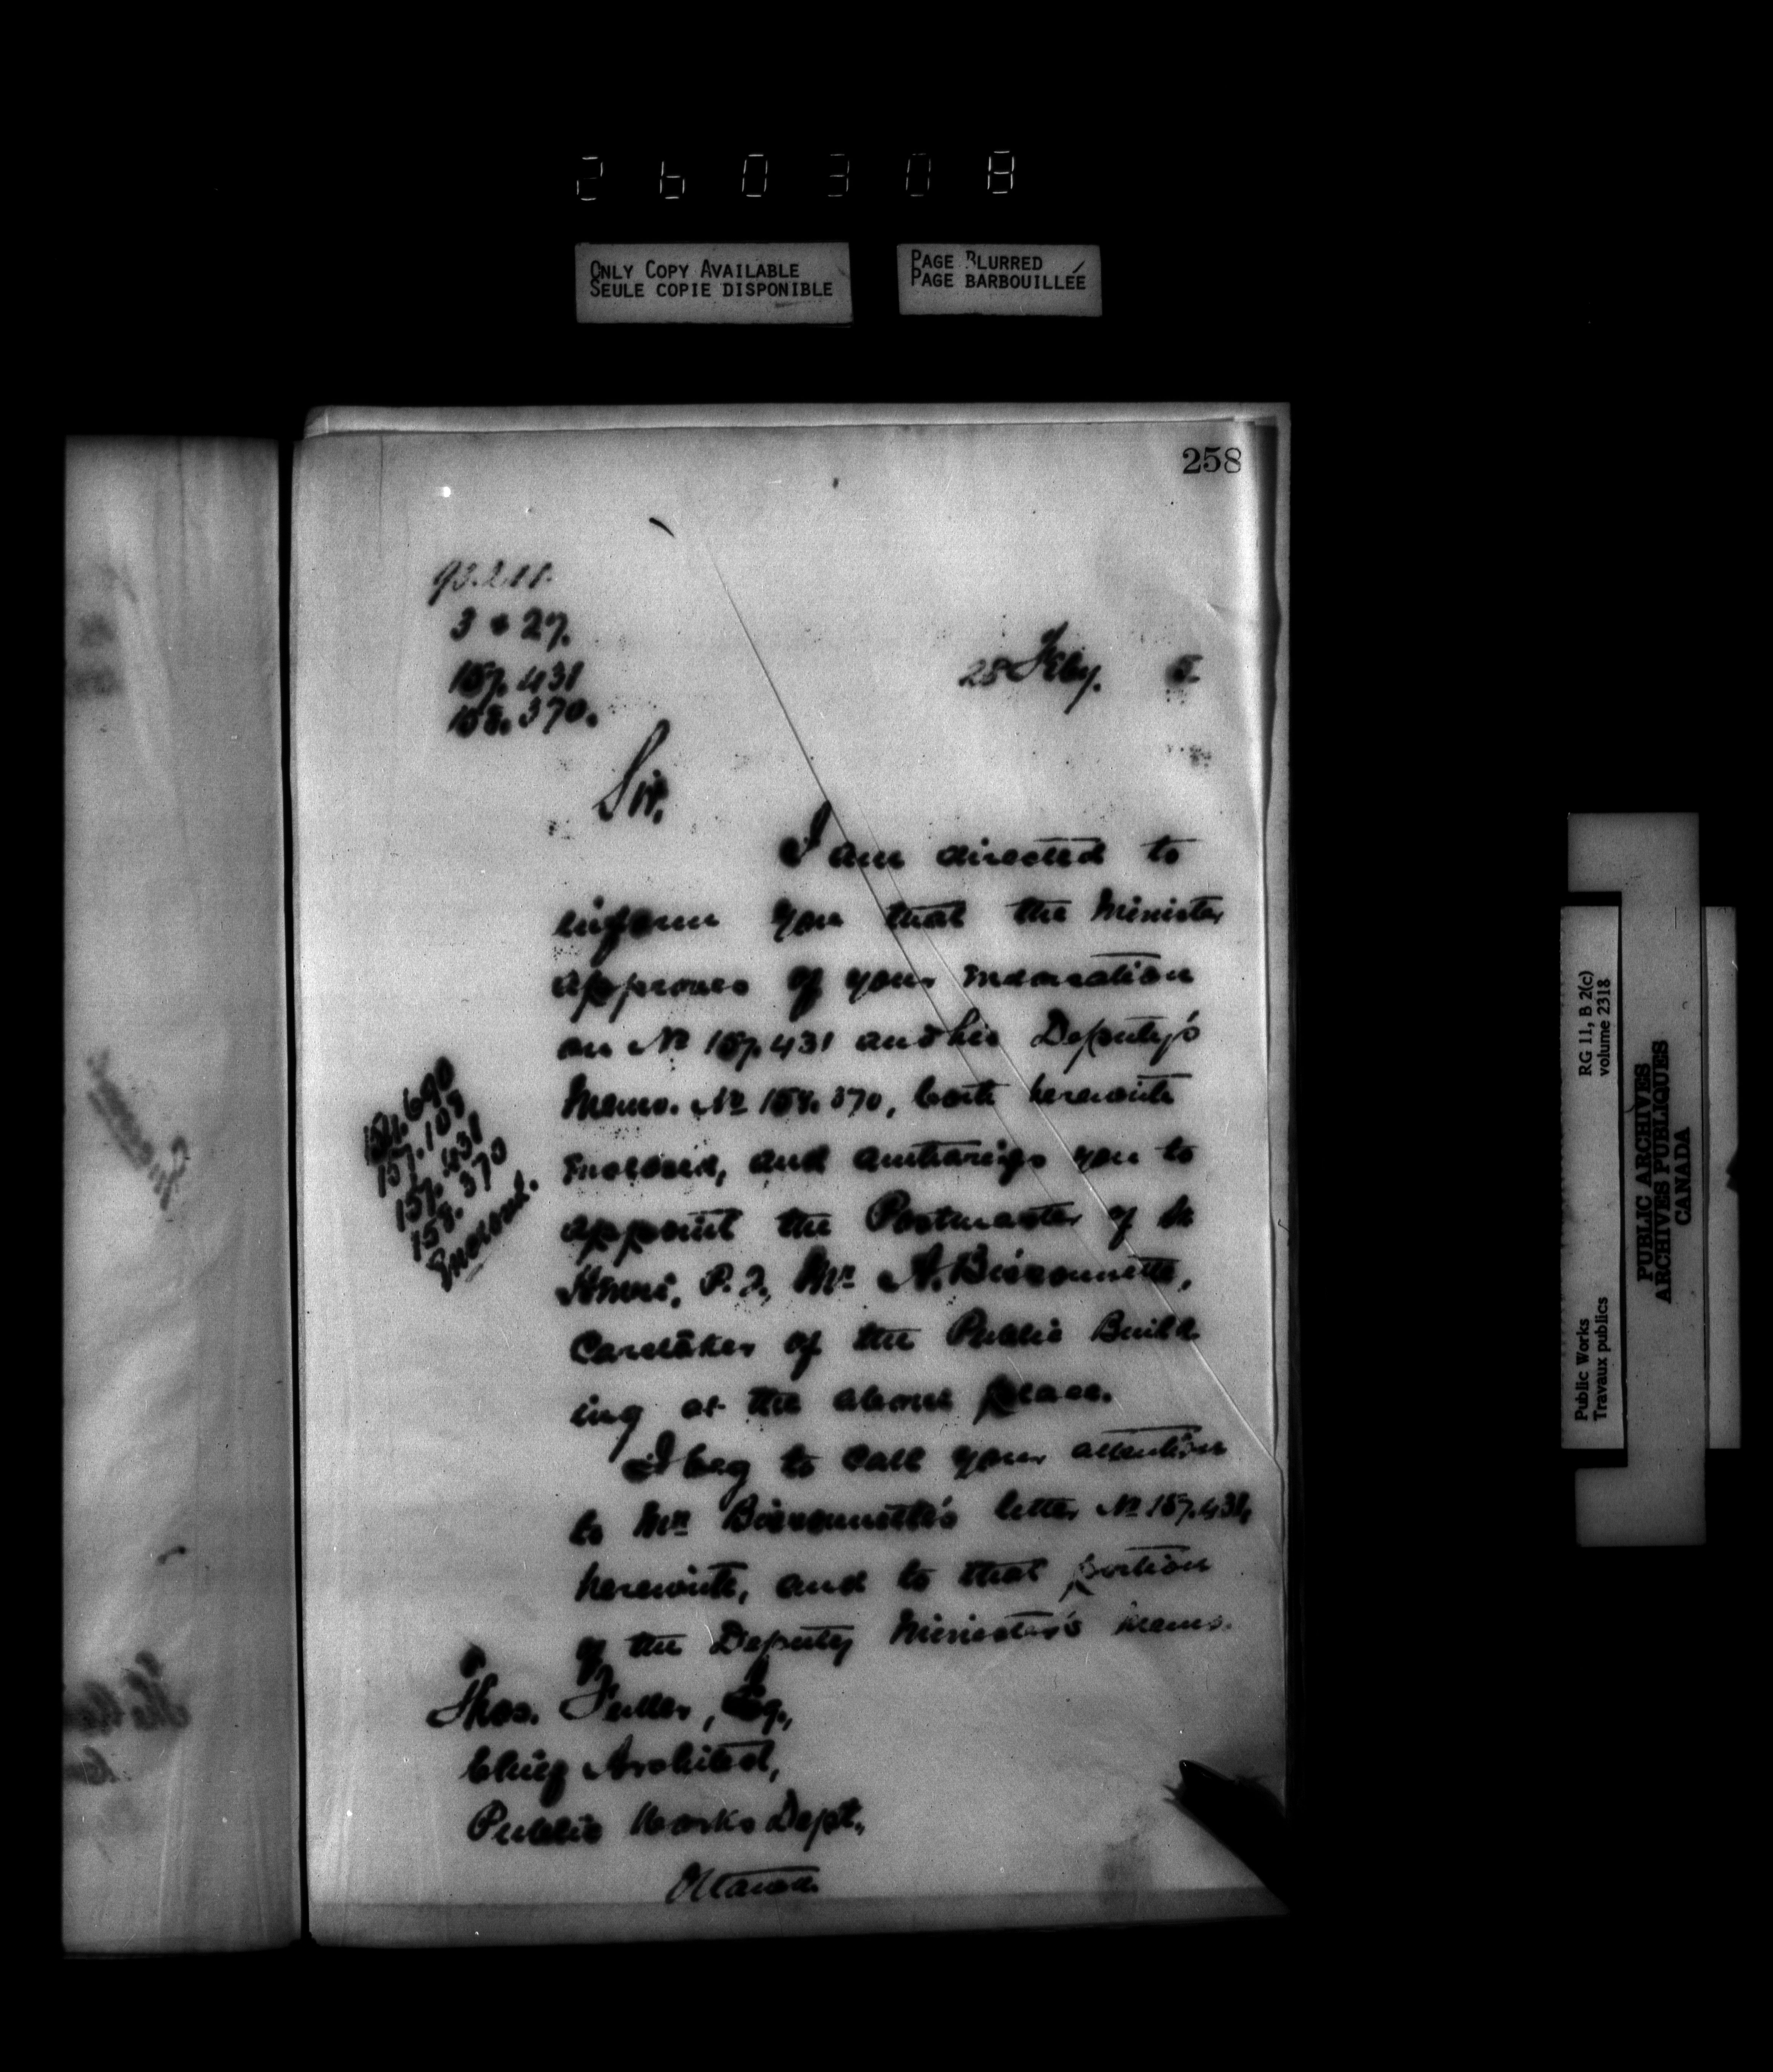 260308
ONLY COPY AVAILABLE
SEULE COPIE DISPONIBLE
PAGE BLURRED
PAGE BARBOUILLÉE
258
3 & 27.
157.431
158.370.
28 Feby. 5
Sir,
I am directed to
inform you that the Minister
approves of your
on No 157.431 and his Deputy's
Memo. No 158.370, both herewith
Enclosed, and authorizes you to
appoint the Postmaster of St
Henri, P.Q., Mr A. Bissonnette,
Caretaker of the Public Build
ing at the above place.
I beg to call your attention
to Mr Bissonnette's letter No 157.431,
herewith, and to that portion
of the Deputy Minister's memo.
157.108
157.431
158.370
Enclosed.
Thos. Fuller, Esq.,
Chief Architect,
Public Works Dept.,
Ottawa.
RG 11, B 2(c)
volume 2318
Public Works
Travaux publics
PUBLIC ARCHIVES
ARCHIVES PUBLIQUES
CANADA